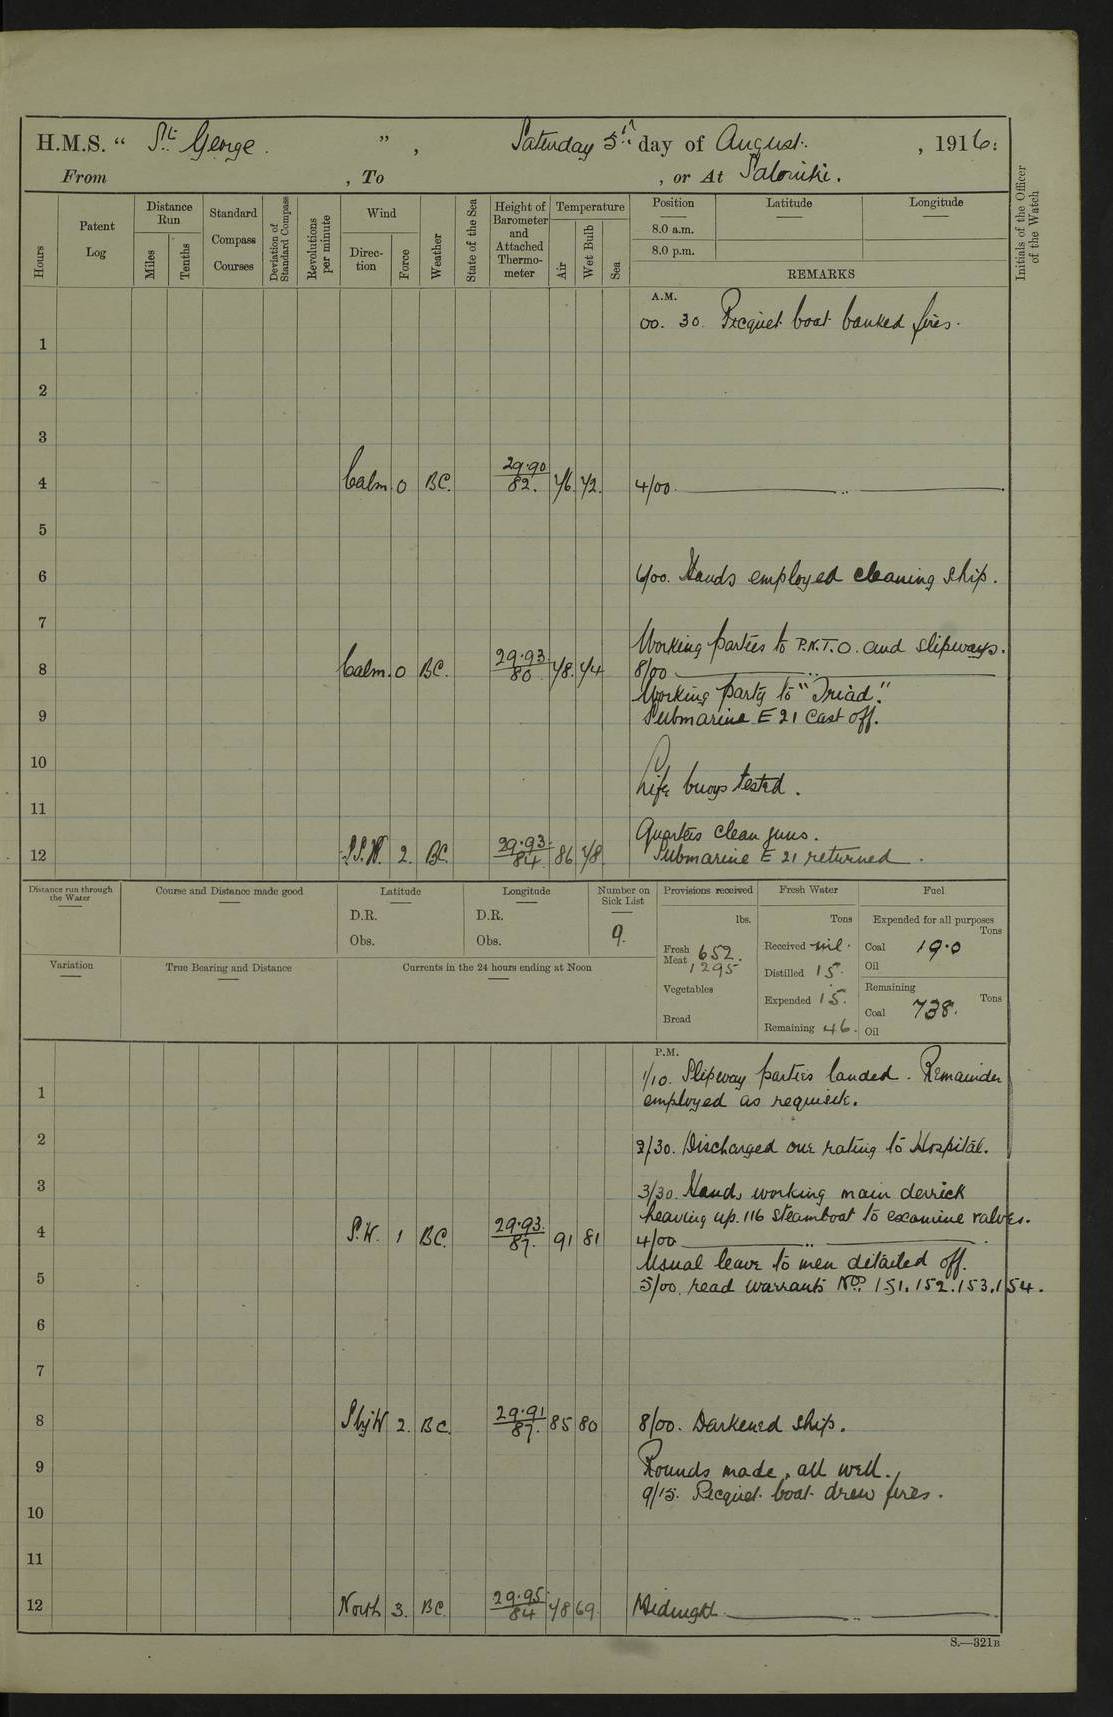 H.M.S. “ St. George. ” , Saturday 5th day of August. , 1916:
From , To , or At Salonika.
Hours
Patent Log
Distance Run
Miles
Tenths
Standard Compass Courses
Deviation of Standard Compass
Revolutions per minute
Wind
Direction
Force
Weather
State of the Sea
Height of Barometer and Attached Thermometer
Temperature
Air
Wet Bulb
Sea
Position
8.0 a.m.
8.0 p.m.
Latitude
Longitude
REMARKS
Initials of the Officer of the Watch
A.M.
00. 30. Picquet boat banked fires.
1
2
3
4 Calm. 0 BC. 29.90/82. 76. 72. 4/00
5
6 6/00. Hands employed cleaning ship.
7
Working parties to P.N.T.O. and slipways.
8 Calm. 0 BC. 29.93/80 78. 74 8/00
Working party to “Triad”.
9 Submarine E 21 cast off.
10
Life buoys tested.
11
Quarters clean guns.
12 S.S.W. 2. BC. 29.93/84 86 78. Submarine E 21 returned.
Distance run through the Water
Course and Distance made good
Latitude
D.R.
Obs.
Longitude
D.R.
Obs.
Number on Sick List
9.
Provisions received
lbs.
Fresh Meat 652.
1295
Vegetables
Bread
Fresh Water
Tons
Received nil.
Distilled 15.
Expended 15.
Remaining 46.
Fuel
Expended for all purposes
Tons
Coal 19.0
Oil
Remaining
Tons
Coal 738.
Oil
Variation
True Bearing and Distance
Currents in the 24 hours ending at Noon
P.M.
1/10. Slipway parties landed. Remainder
1 employed as requisite.
2 2/30. Discharged one rating to Hospital.
3 3/30. Hands working main derrick
heaving up. 116 steamboat to examine valves.
4 S.W. 1 BC. 29.93./87. 91 81 4/00
Usual leave to men detailed off.
5 5/00. read warrants Nos. 151. 152. 153. 154.
6
7
8 S by W 2. BC. 29.91/87. 85 80 8/00. Darkened ship.
9 Rounds made, all well.
9/15. Picquet boat drew fires.
10
11
12 North 3. BC. 29.95/84 78 69. Midnight
S.—321B